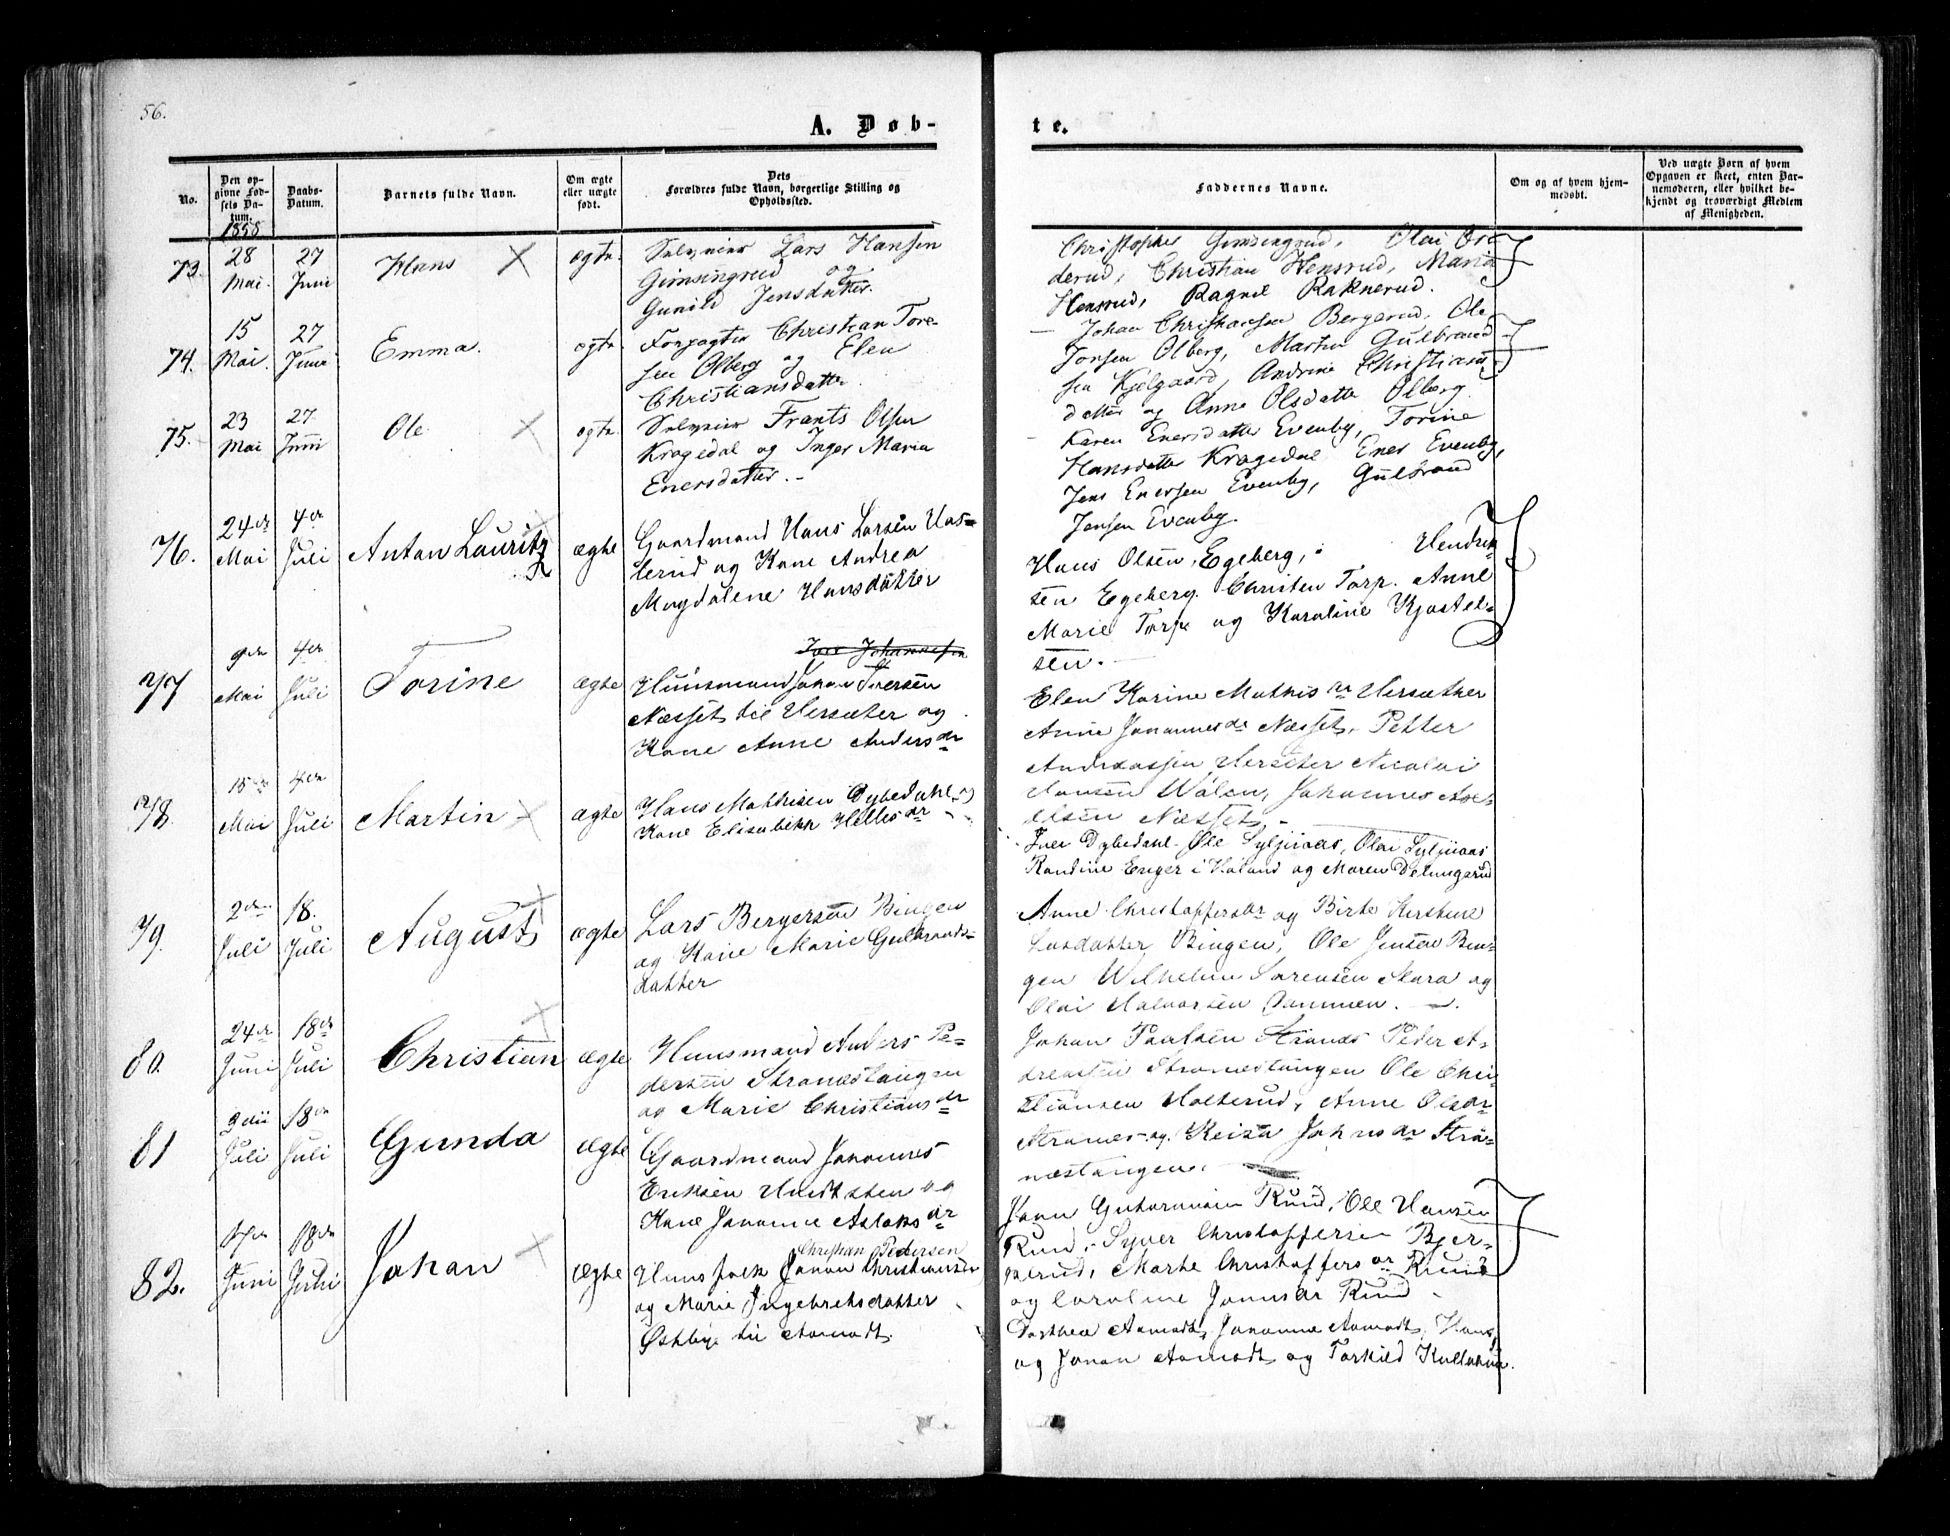 56.
A. Døb-
te.
No.
Den op-
givne Fød-
sels Da-
tum.
Daabs-
Datum.
Barnets fulde Navn.
Om ægte
eller uægte
født.
Dets
Forældres fulde Navn, borgerlige Stilling og
Opholdssted.
Faddernes Navne.
Om og af hvem hjem-
medøbt.
Ved uægte Børn af hvem
Opgaven er skeet, enten Bar-
nemoderen, eller hvilket be-
kjendt og troværdigt Medlem
af Menigheden.
1858
73.
28
Mai.
27
Juni
Hans
ægte.
Selveier Lars Hansen
Gimsingrud og
Gunild Jensdatter.
Christopher Gimsengrud, Olai
derud, Christian Hensrud, Maria
Hensrud, Ragnil Raknerud.
74.
15
Mai.
27
Juni
Emma.
ægte.
Forpagter Christian Tore-
sen Olberg og Elen
Christiansdatter.
Johan Christiansen Bergerud, Ole
Jonsen Olberg, Martin Gulbrand
sen Kjelgaard, Andrine Christians
datter og Anne Olsdatter Olberg
75.
23
Mai
27
Juni
Ole
egte.
Selveier Frants Olsen
Kragedal og Inger Maria
Enersdatter.-
Karen Enersdatter Evenby, Torine
Hansdatter Kragedal Ener Evenby,
Jens Enersen Evenby, Gulbrand
Jensen Evenby.
76.
24de
Mai
4de
Juli
Anton Lauritz
ægte
Gaardmand Hans Larsen Has-
lerud og Kone Andrea
Magdalene Hansdatter
Hans Olsen, Egeberg, Hendrik
sen Egeberg. Christen Torp. Anne
Marie Torp og Karoline Kjostel-
sen.-
77
9de
Mai
4de
Juli
Torine
ægte
Iver Johannesen
Huusmand Johan Iversen
Næsset til Hersæter og
Kone Anne Andersdr
Elen Karine Mathisdr Hersæther
Anne Johannesdr Næsset, Petter
Andreassen Hersæter Nicolai
Hansen Wålen, Johannes
elsen Næsset,-
78.
15de
Mai
4de
Juli
Martin
ægte
Hans Mathisen Dybedahl og
Kone Elisabeth Hellesdr
Iver Dybedahl. Ole Syljuaas, Olai Syljuaas
Randine Enger i Høland og Maren Delingsrud
79.
2den
Juli
18.
Juli
August
ægte
Lars Bergersen Bingen
og Kone Marie Gulbrands-
datter
Anne Christoffersdr og Birte Kirstine
Larsdatter Bingen, Ole Jensen Bin-
gen Wilhelm Sørensen Skara og
Olai Halvorsen Dammen.
80.
24de
Juni
18de
Juli
Christian
ægte
Huusmand Anders Pe-
dersen Strømestangen
og Marie Christiansdr
Johan Paulsen Strømes Peder A-
dreassen Strømestangen Ole Chri-
stiansen Holterud, Anne Olsdr
Strømes og Keiza Johnsdr Strø-
mestangen.
81
2
Juli
18de
Juli
Gunda
ægte
Gaardmand Johannes
Eriksen og
Kone Johanne Aslaksdr
John Guttormsen Rud, Ole Hansen
Rud, Syver Christoffersen Bjer-
gerud, Marte Christoffersdr Rud
og Caroline Rud
82.
Juni
18de
Juli
Johan
ægte
Christian Pedersen
Huusfolk Johan Christiansen
og Marie Ingebretsdatter
Østby til Aamodt.
Dorthea Aamodt, Johanne Aamodt, Hans
og Johan Aamodt og Torkild